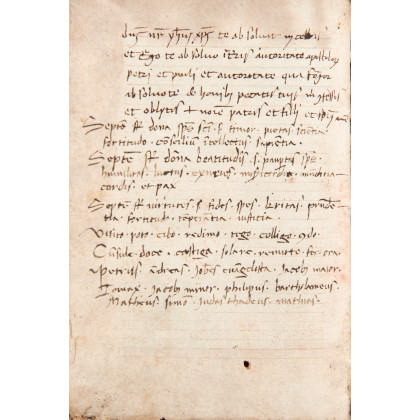 dus nr yhus xps te absoluit in celis
et Ego te absoluo ipsius autoritate apostolor
petri et pauli et autoritate qua fungor
absoluo te de omnibus peccatis tuis
et oblitis + noie patris et filii et spus
Septe st dona spus sci s. timor . pietas sciencia
fortitudo . consilium intellectus sapientia .
Septem st dona beatitudis s. paupertas spus
humilitas . luctus . esuries . misericordia . mudicia
cordis et pax
Septe st virtutes s. fides spes . karitas prude
tia fortitudo . temperantia . iusticia .
Visito . poto . cibo . redimo . tego . colligo . condo .
Cusule . doce . castiga . solare . remitte . fer . ora .
Petrus . andreas . Johes euangelista . Jacobus maior .
Tomax . Jacobus minor . philipus . bartholomeus
Matheus . simon . Judas thadeus . mathias .